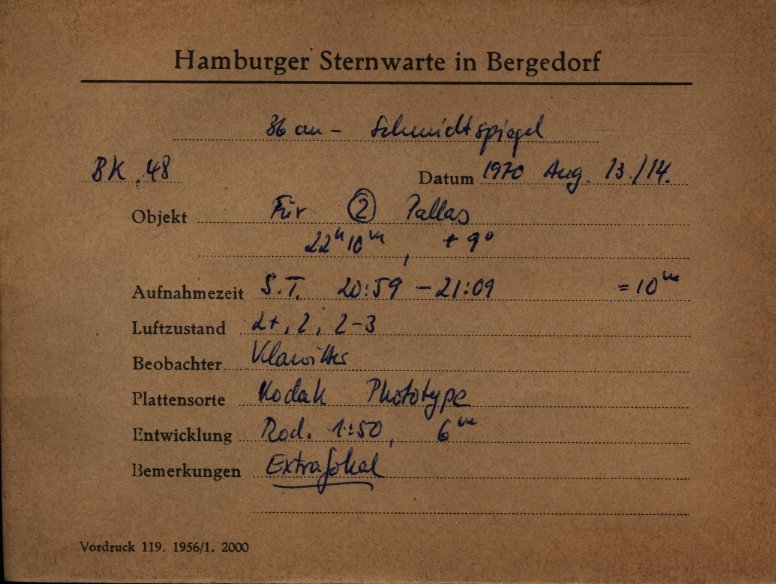 Hamburger Sternwarte in Bergedorf
36 cm - Schmidtspiegel
BK. 48 Datum 1970 Aug. 13./14.
Objekt Für ② Pallas
22ʰ10ᵐ, +9°
Aufnahmezeit S.T. 20:59 - 21:09 = 10ᵐ
Luftzustand 2+, 2, 2-3
Beobachter Klawitter
Plattensorte Kodak Phototype
Entwicklung Rod. 1:50, 6ᵐ
Bemerkungen Extrafokal
Vordruck 119. 1956/1. 2000